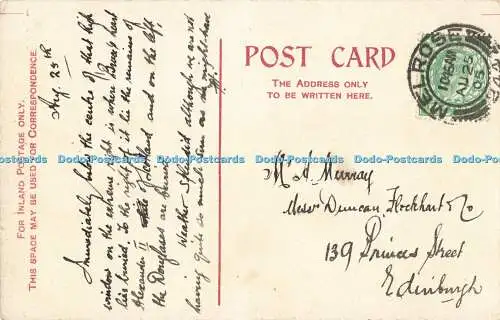 FOR INLAND POSTAGE ONLY.
THIS SPACE MAY BE USED FOR CORRESPONDENCE.
Aug. 25th
Immediately below the centre of that high
window on the extreme right is where Bruce's heart
lies buried. To the right of it lie the remains of
Alexander II of Scotland and on the left
the Douglases are buried.
Weather splendid although we are not
having quite so much sun as we might have
POST CARD
THE ADDRESS ONLY
TO BE WRITTEN HERE.
MELROSE
1025AM
AU 25
05
M. A. Murray
Messrs Duncan Flockhart & Co
139 Princes Street
Edinburgh
Dodo-Postcards Dodo-Postcards Dodo-Postcards Dodo-Postcards Dodo-Postcards